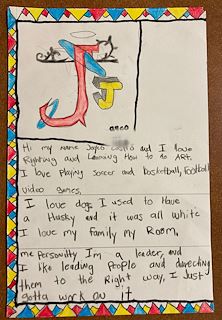 J
J
Hi my name Jayco Castro and I love
Righting and Learning How to do ART.
I love Playing Soccer and basketball, Football
video games.
I love dogs I used to Have
a Husky and it was all white
I love my family my Room,
me Personilty I'm a leader, and
I like leading People and directing
them to the Right way, I Just
gotta work on it